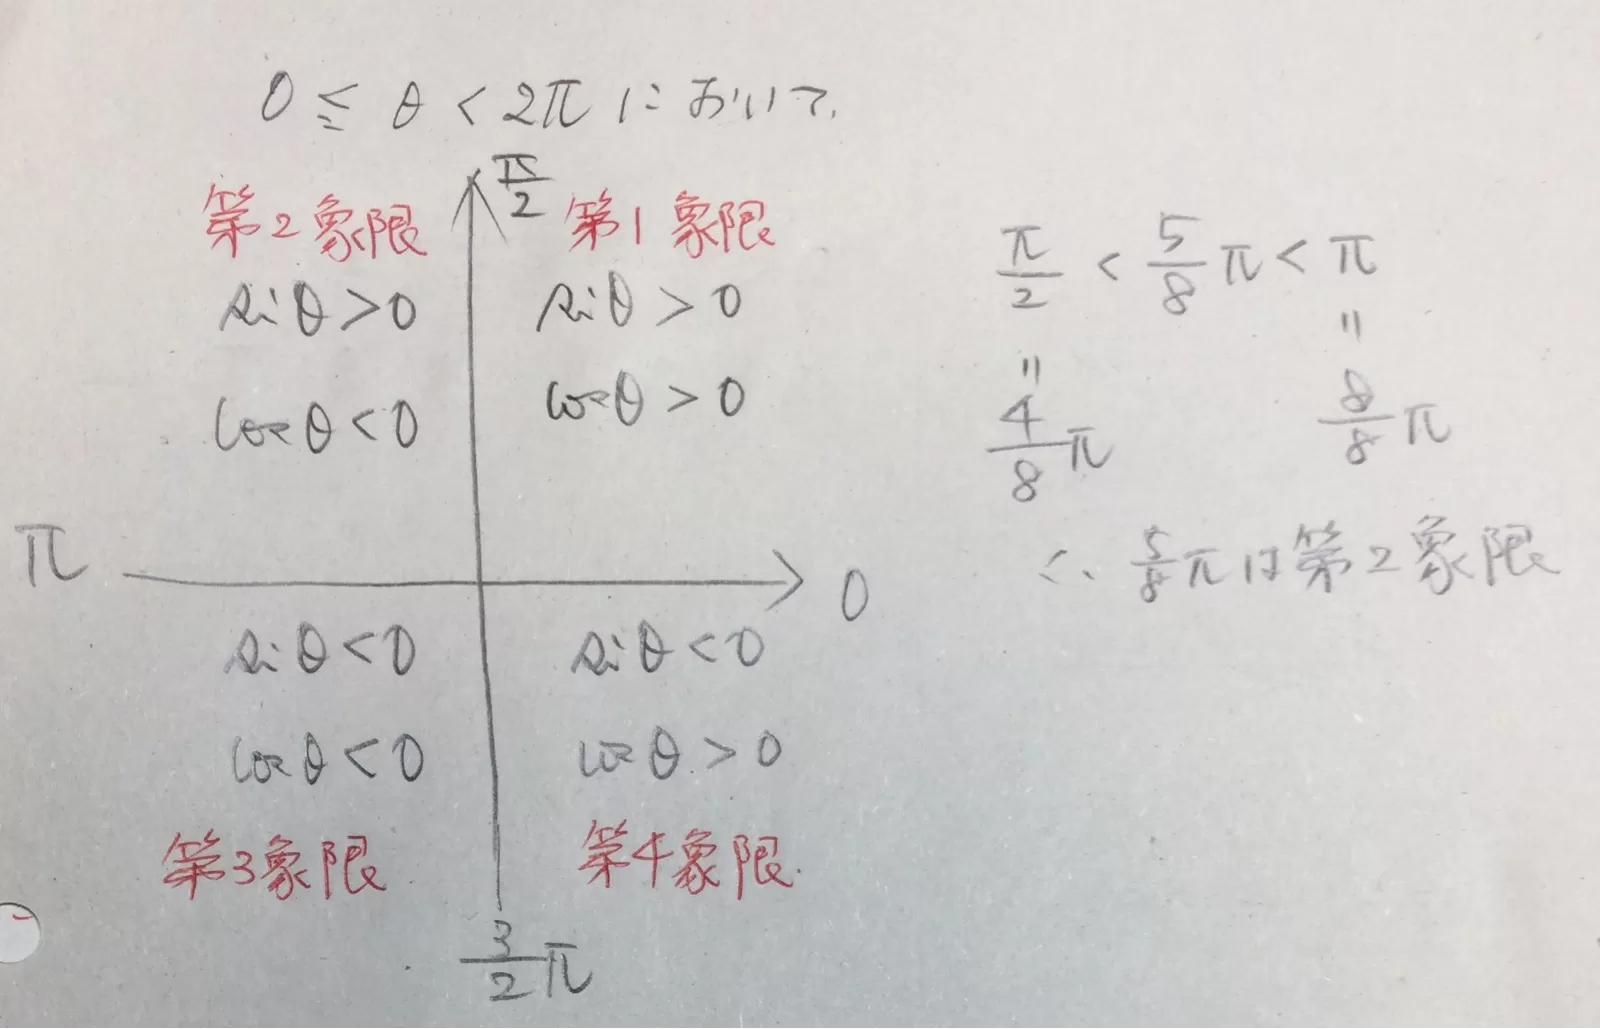 0 ≦ θ < 2π において、
π/2
第2象限
sinθ > 0
cosθ < 0
第1象限
sinθ > 0
cosθ > 0
π
0
sinθ < 0
cosθ < 0
第3象限
sinθ < 0
cosθ > 0
第4象限
3/2 π
π/2 < 5/8 π < π
= =
4/8 π 8/8 π
∴ 5/8 π は第2象限